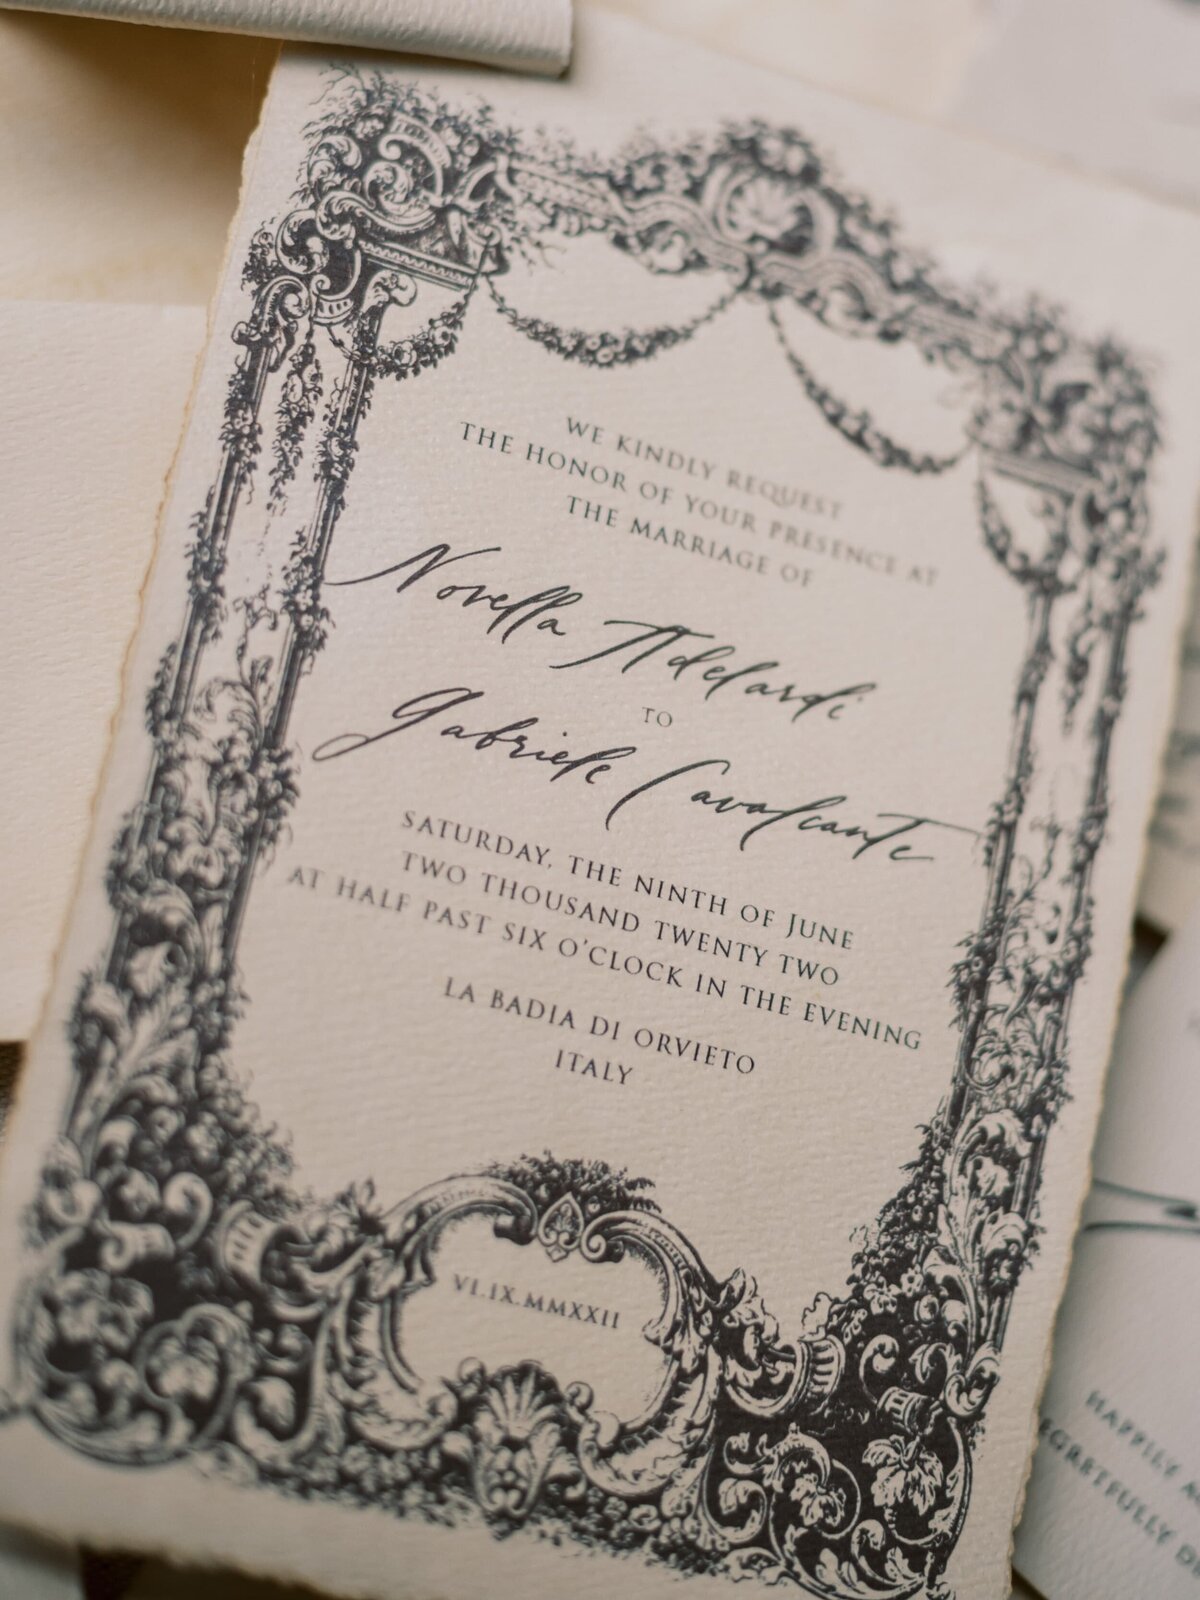 WE KINDLY REQUEST
THE HONOR OF YOUR PRESENCE AT
THE MARRIAGE OF
Novella Adelardi
TO
Gabriele Cavalcante
SATURDAY, THE NINTH OF JUNE
TWO THOUSAND TWENTY TWO
AT HALF PAST SIX O'CLOCK IN THE EVENING
LA BADIA DI ORVIETO
ITALY
VI.IX.MMXXII
HAPPILY
EGRETFULLY